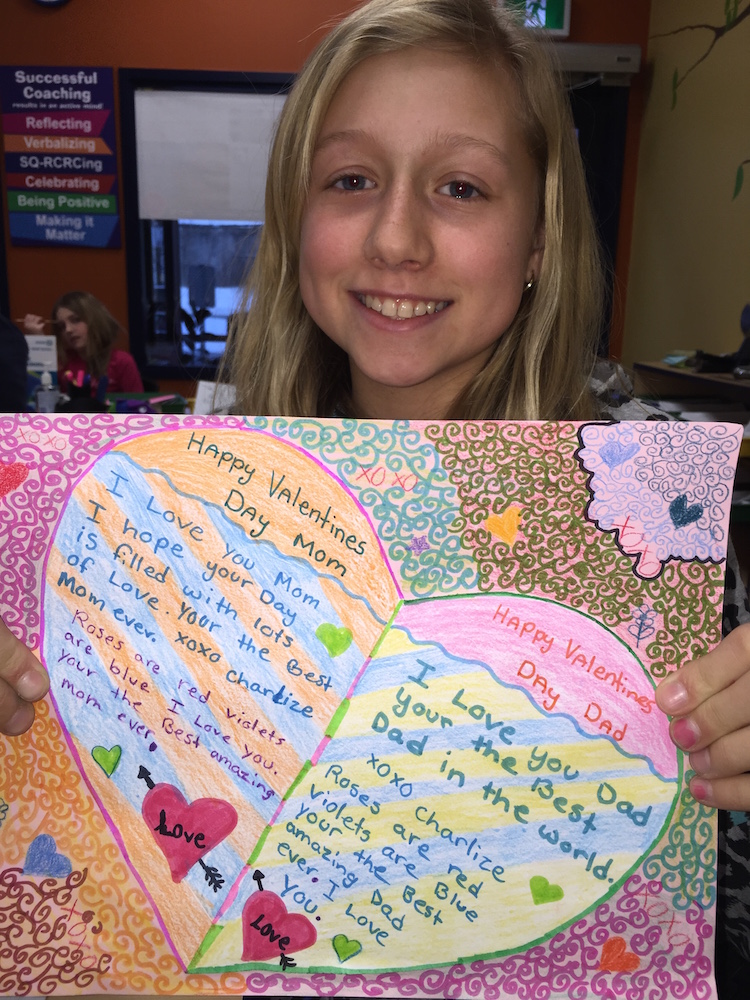 Successful
Coaching
results in an active mind!
Reflecting
Verbalizing
SQ-RCRCing
Celebrating
Being Positive
Making it
Matter
XOXO
Happy Valentines
Day Mom
I Love You Mom
I hope your Day
is filled with lots
of Love. Your the Best
Mom ever. xoxo charlize
Roses are red violets
are blue I Love you.
your the Best amazing
mom ever.
Love
XOXO
XOXO
Happy Valentines
Day Dad
I Love you Dad
your the Best
Dad in the world.
xoxo Charlize
Roses are red
violets are Blue
your the Best
amazing Dad
ever. I Love
You.
Love
XOXO
XOXO